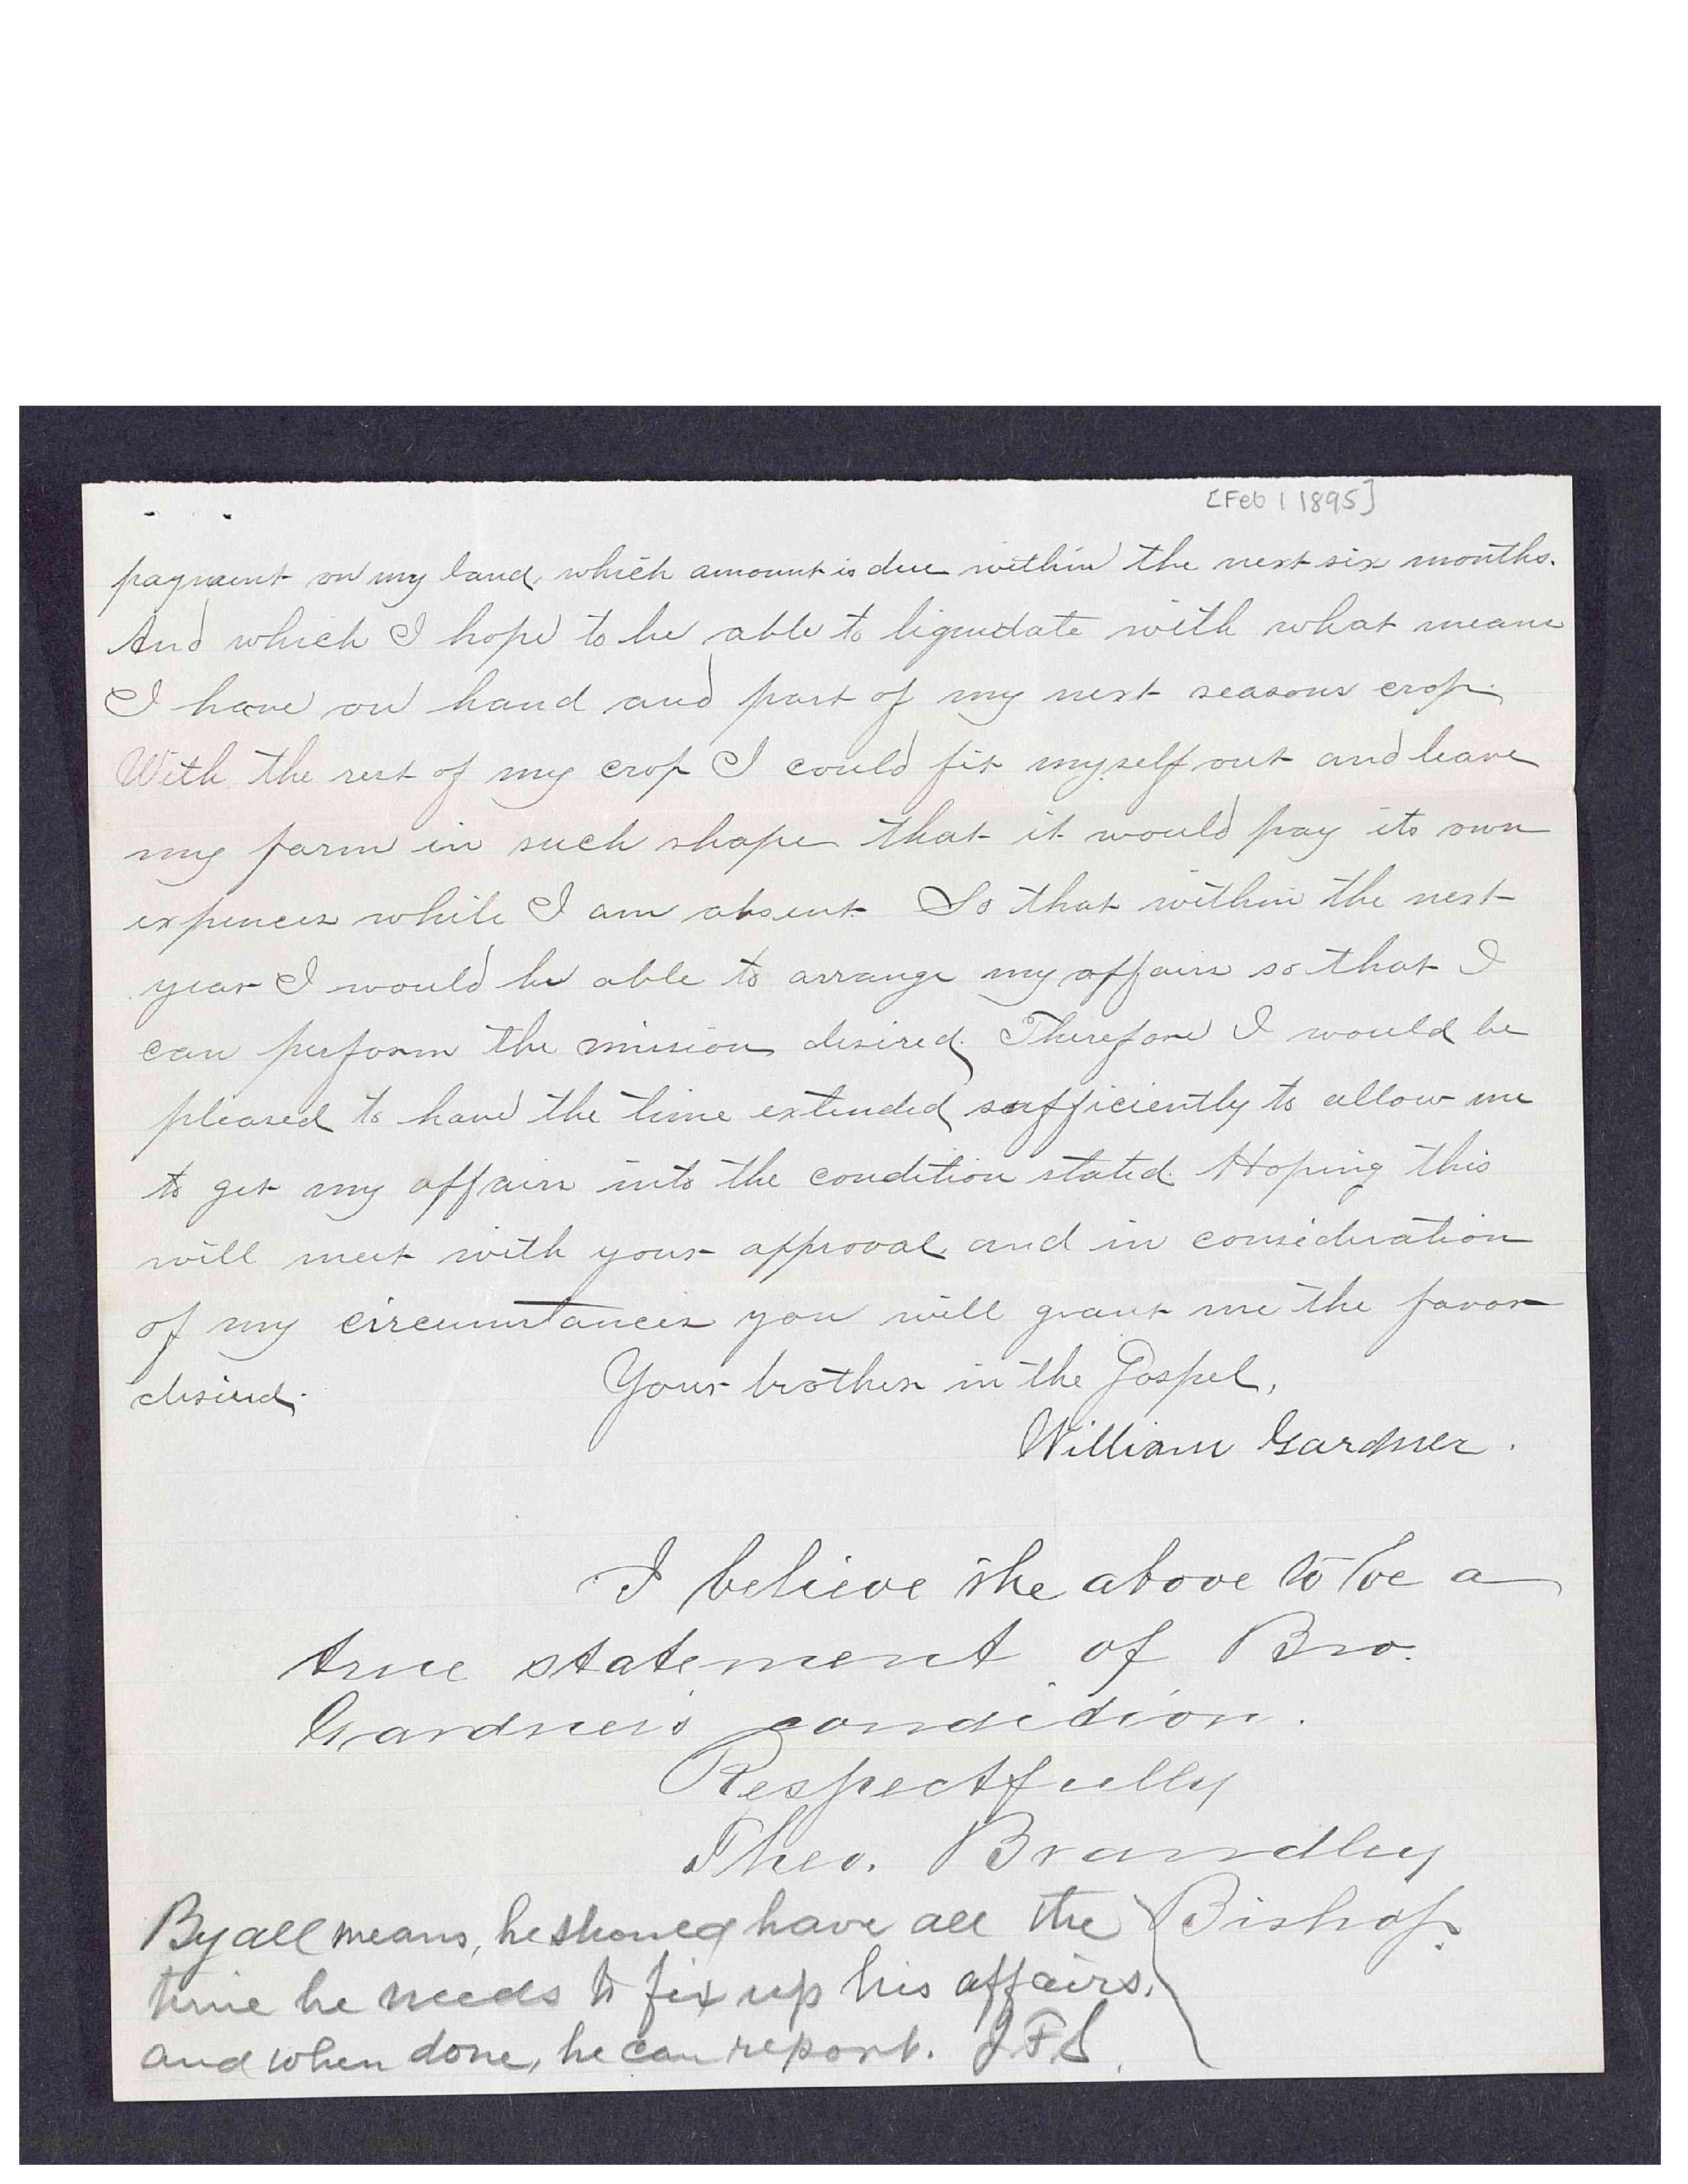 [Feb 1 1895]
payment on my land, which amount is due within the next six months.
And which I hope to be able to liquidate with what means
I have on hand and part of my next seasons crop.
With the rest of my crop I could fix myself out and leave
my farm in such shape that it would pay its own
expences while I am absent. So that within the next
year I would be able to arrange my affairs so that I
can perform the mision desired. Therefore I would be
pleased to have the time extended sufficiently to allow me
to get my affairs into the condition stated. Hoping this
will meet with your approval, and in consideration
of my circumstances you will grant me the favor
desired.
Your brother in the Gospel,
William Gardner.
I believe the above to be a
true statement of Bro.
Gardner's condition.
Respectfully
Theo. Brandley
Bishop.
By all means, he should have all the
time he needs to fix up his affairs,
and when done, he can report. J F S.